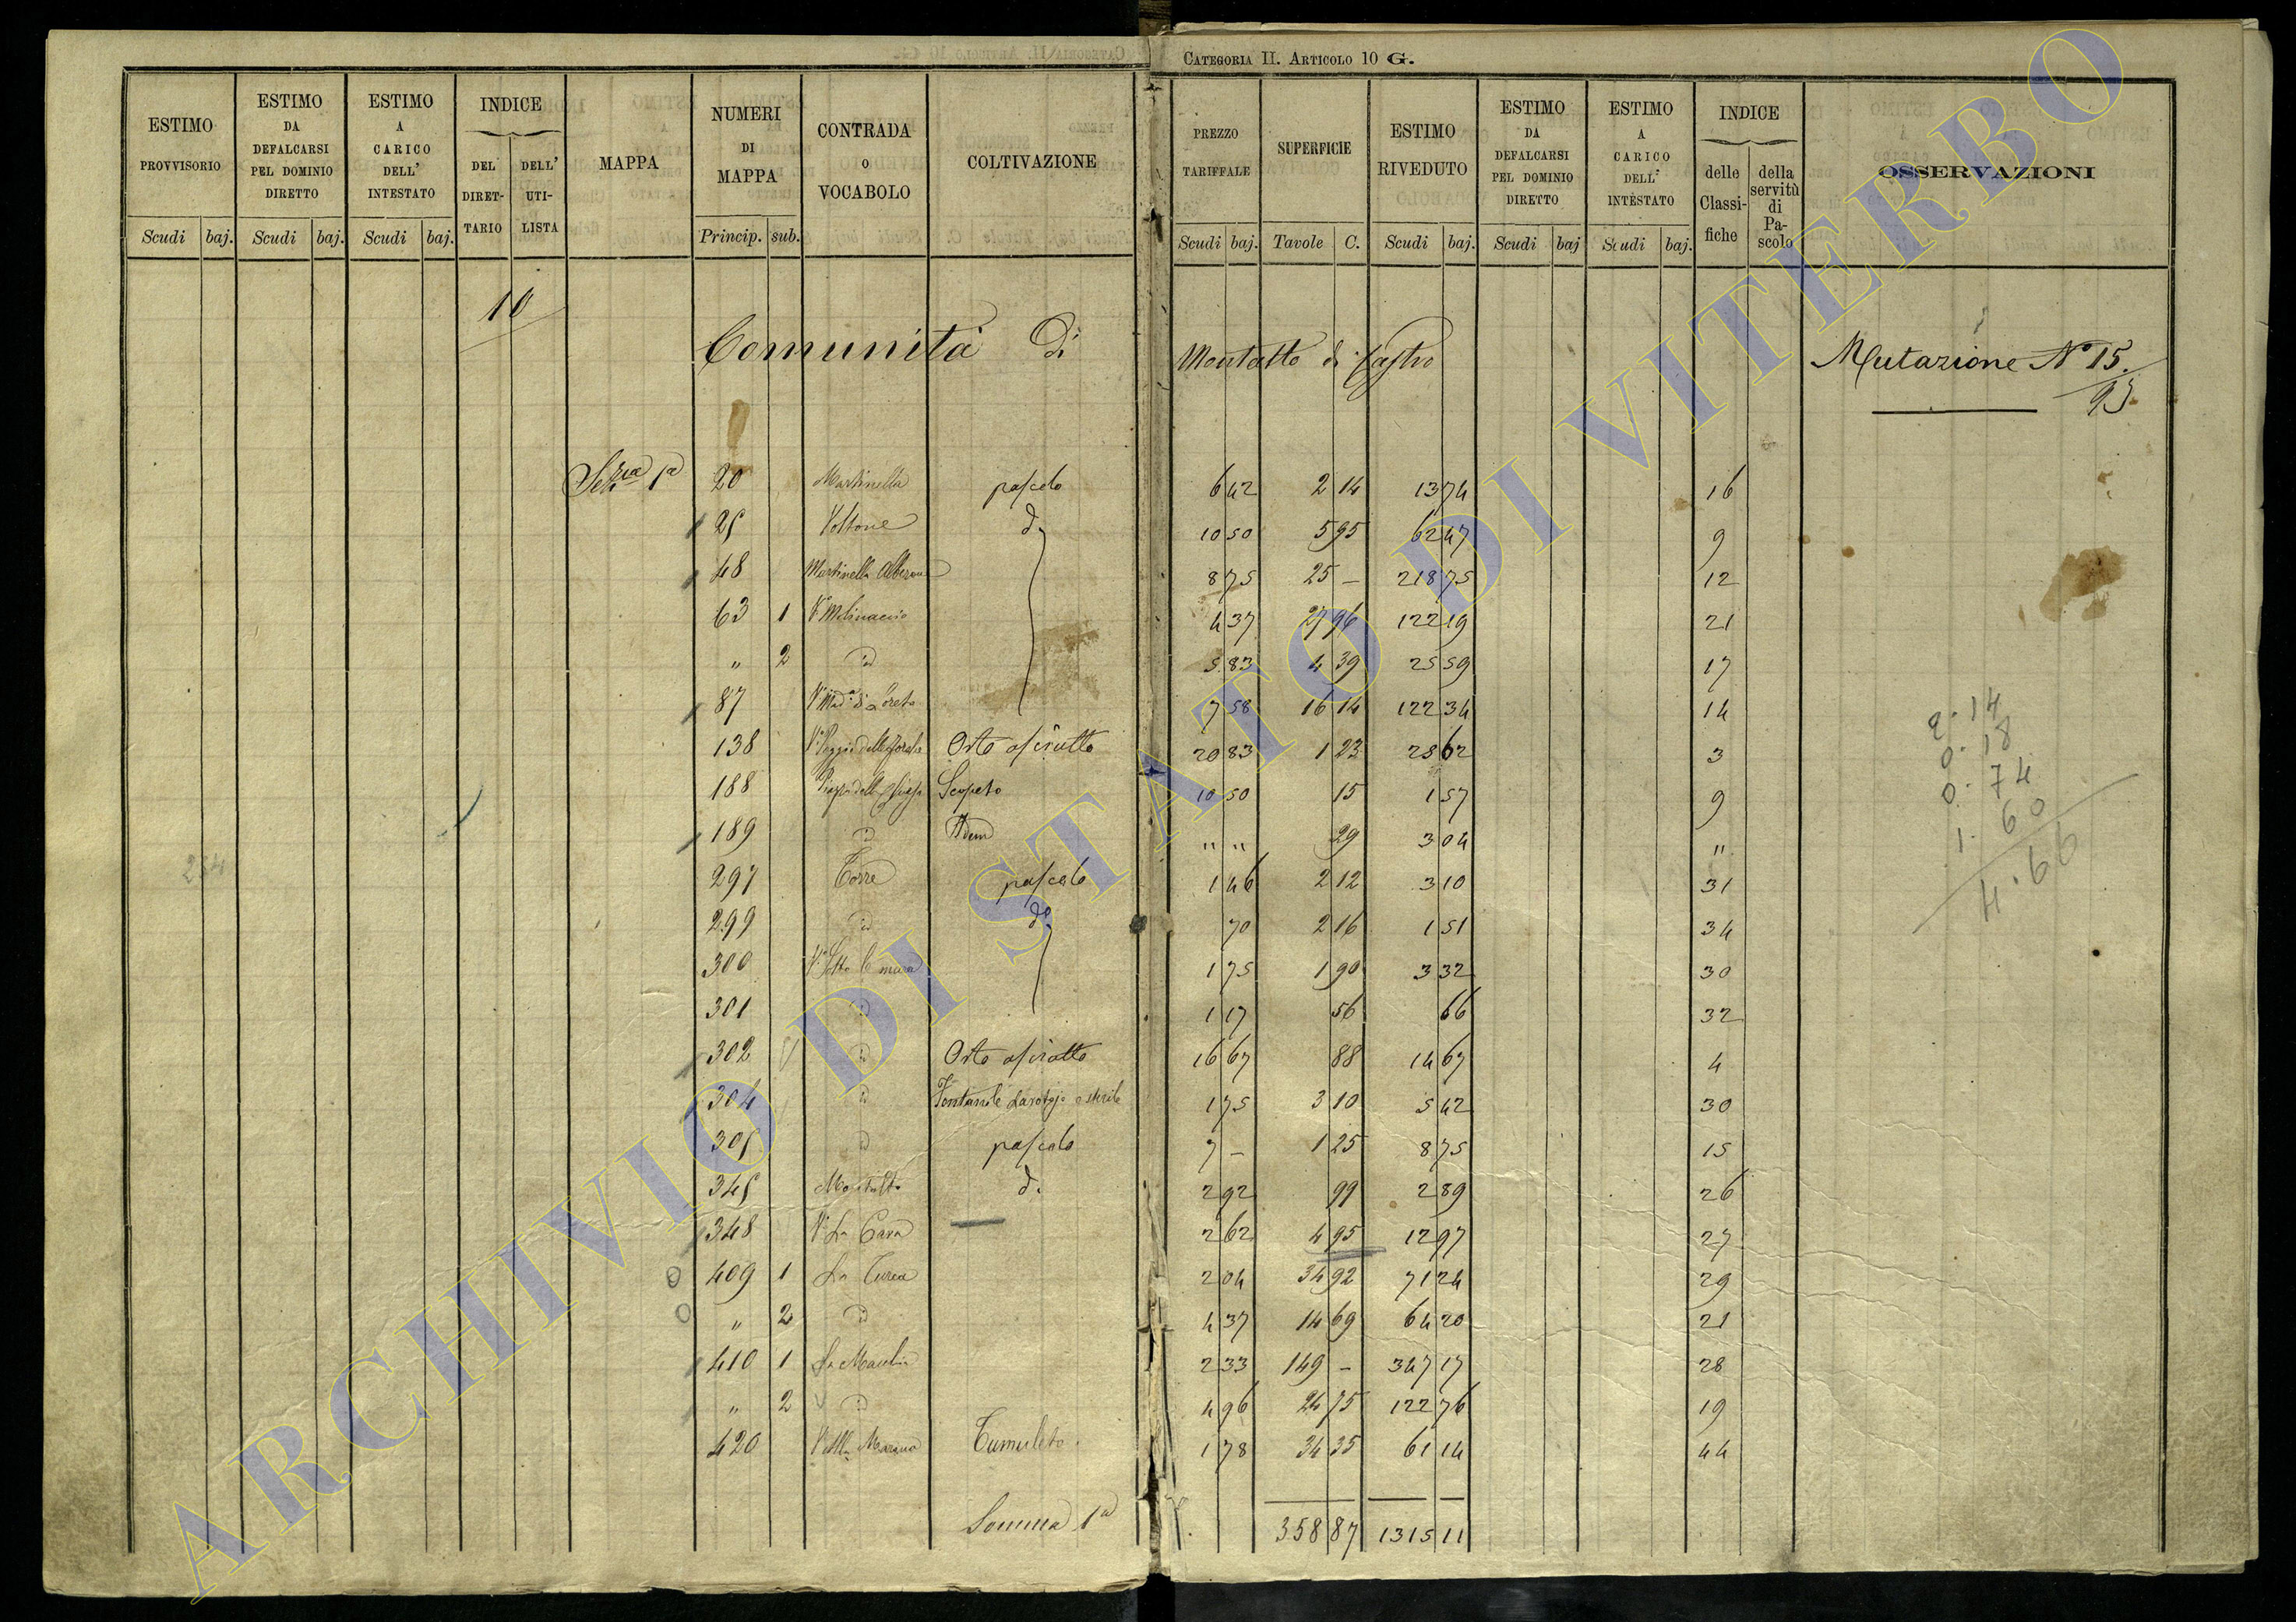 CATEGORIA II. ARTICOLO 10 G.
ESTIMO PROVVISORIO Scudi baj.
ESTIMO DA DEFALCARSI PEL DOMINIO DIRETTO Scudi baj.
ESTIMO A CARICO DELL' INTESTATO Scudi baj.
INDICE DEL DIRET-TARIO DELL' UTI-LISTA
MAPPA
NUMERI DI MAPPA Princip. sub.
CONTRADA O VOCABOLO
COLTIVAZIONE
PREZZO TARIFFALE Scudi baj.
SUPERFICIE Tavole C.
ESTIMO RIVEDUTO Scudi baj.
ESTIMO DA DEFALCARSI PEL DOMINIO DIRETTO Scudi baj
ESTIMO A CARICO DELL' INTESTATO Scudi baj.
INDICE delle Classi-fiche della servitù di Pa-scolo
OSSERVAZIONI
10
Comunità Di Montalto di Castro
Mutazione N° 15.
95
Sez. 1a 20 Martinella pascolo 6 42 2 14 13 74 16
25 Voltone d. 10 50 5 95 62 47 9
48 Martinella 8 75 25 – 218 75 12
63 1 4 37 27 96 122 19 21
" 2 id 5 83 4 39 25 59 17
87 Va Mad.a di Loreto 7 58 16 14 122 34 14
138 Orto asciutto 20 83 1 23 25 62 3
188 Scopeto 10 50 15 1 57 9
189 id Idem " " 29 3 04 "
297 Torre pascolo 1 46 2 12 3 10 31
299 id do 70 2 16 1 51 34
300 Va Sotto le mura 1 75 1 90 3 32 30
301 id 1 17 56 66 32
302 id Orto asciutto 16 67 88 14 67 4
304 id Fontanile 1 75 3 10 5 42 30
305 id pascolo 7 – 1 25 8 75 15
345 Montalto d. 2 92 99 2 89 26
348 Va La Cava 2 62 4 95 12 97 27
409 1 La Turca 2 04 34 92 71 24 29
" 2 id 4 37 14 69 64 20 21
410 1 2 33 149 – 347 17 28
" 2 id 4 96 24 75 122 76 19
420 Tumuleto 1 78 34 35 61 14 44
Somma 1a 358 87 1315 11
254
2.14
0.18
0.74
1.60
4.66
ARCHIVIO DI STATO DI VITERBO